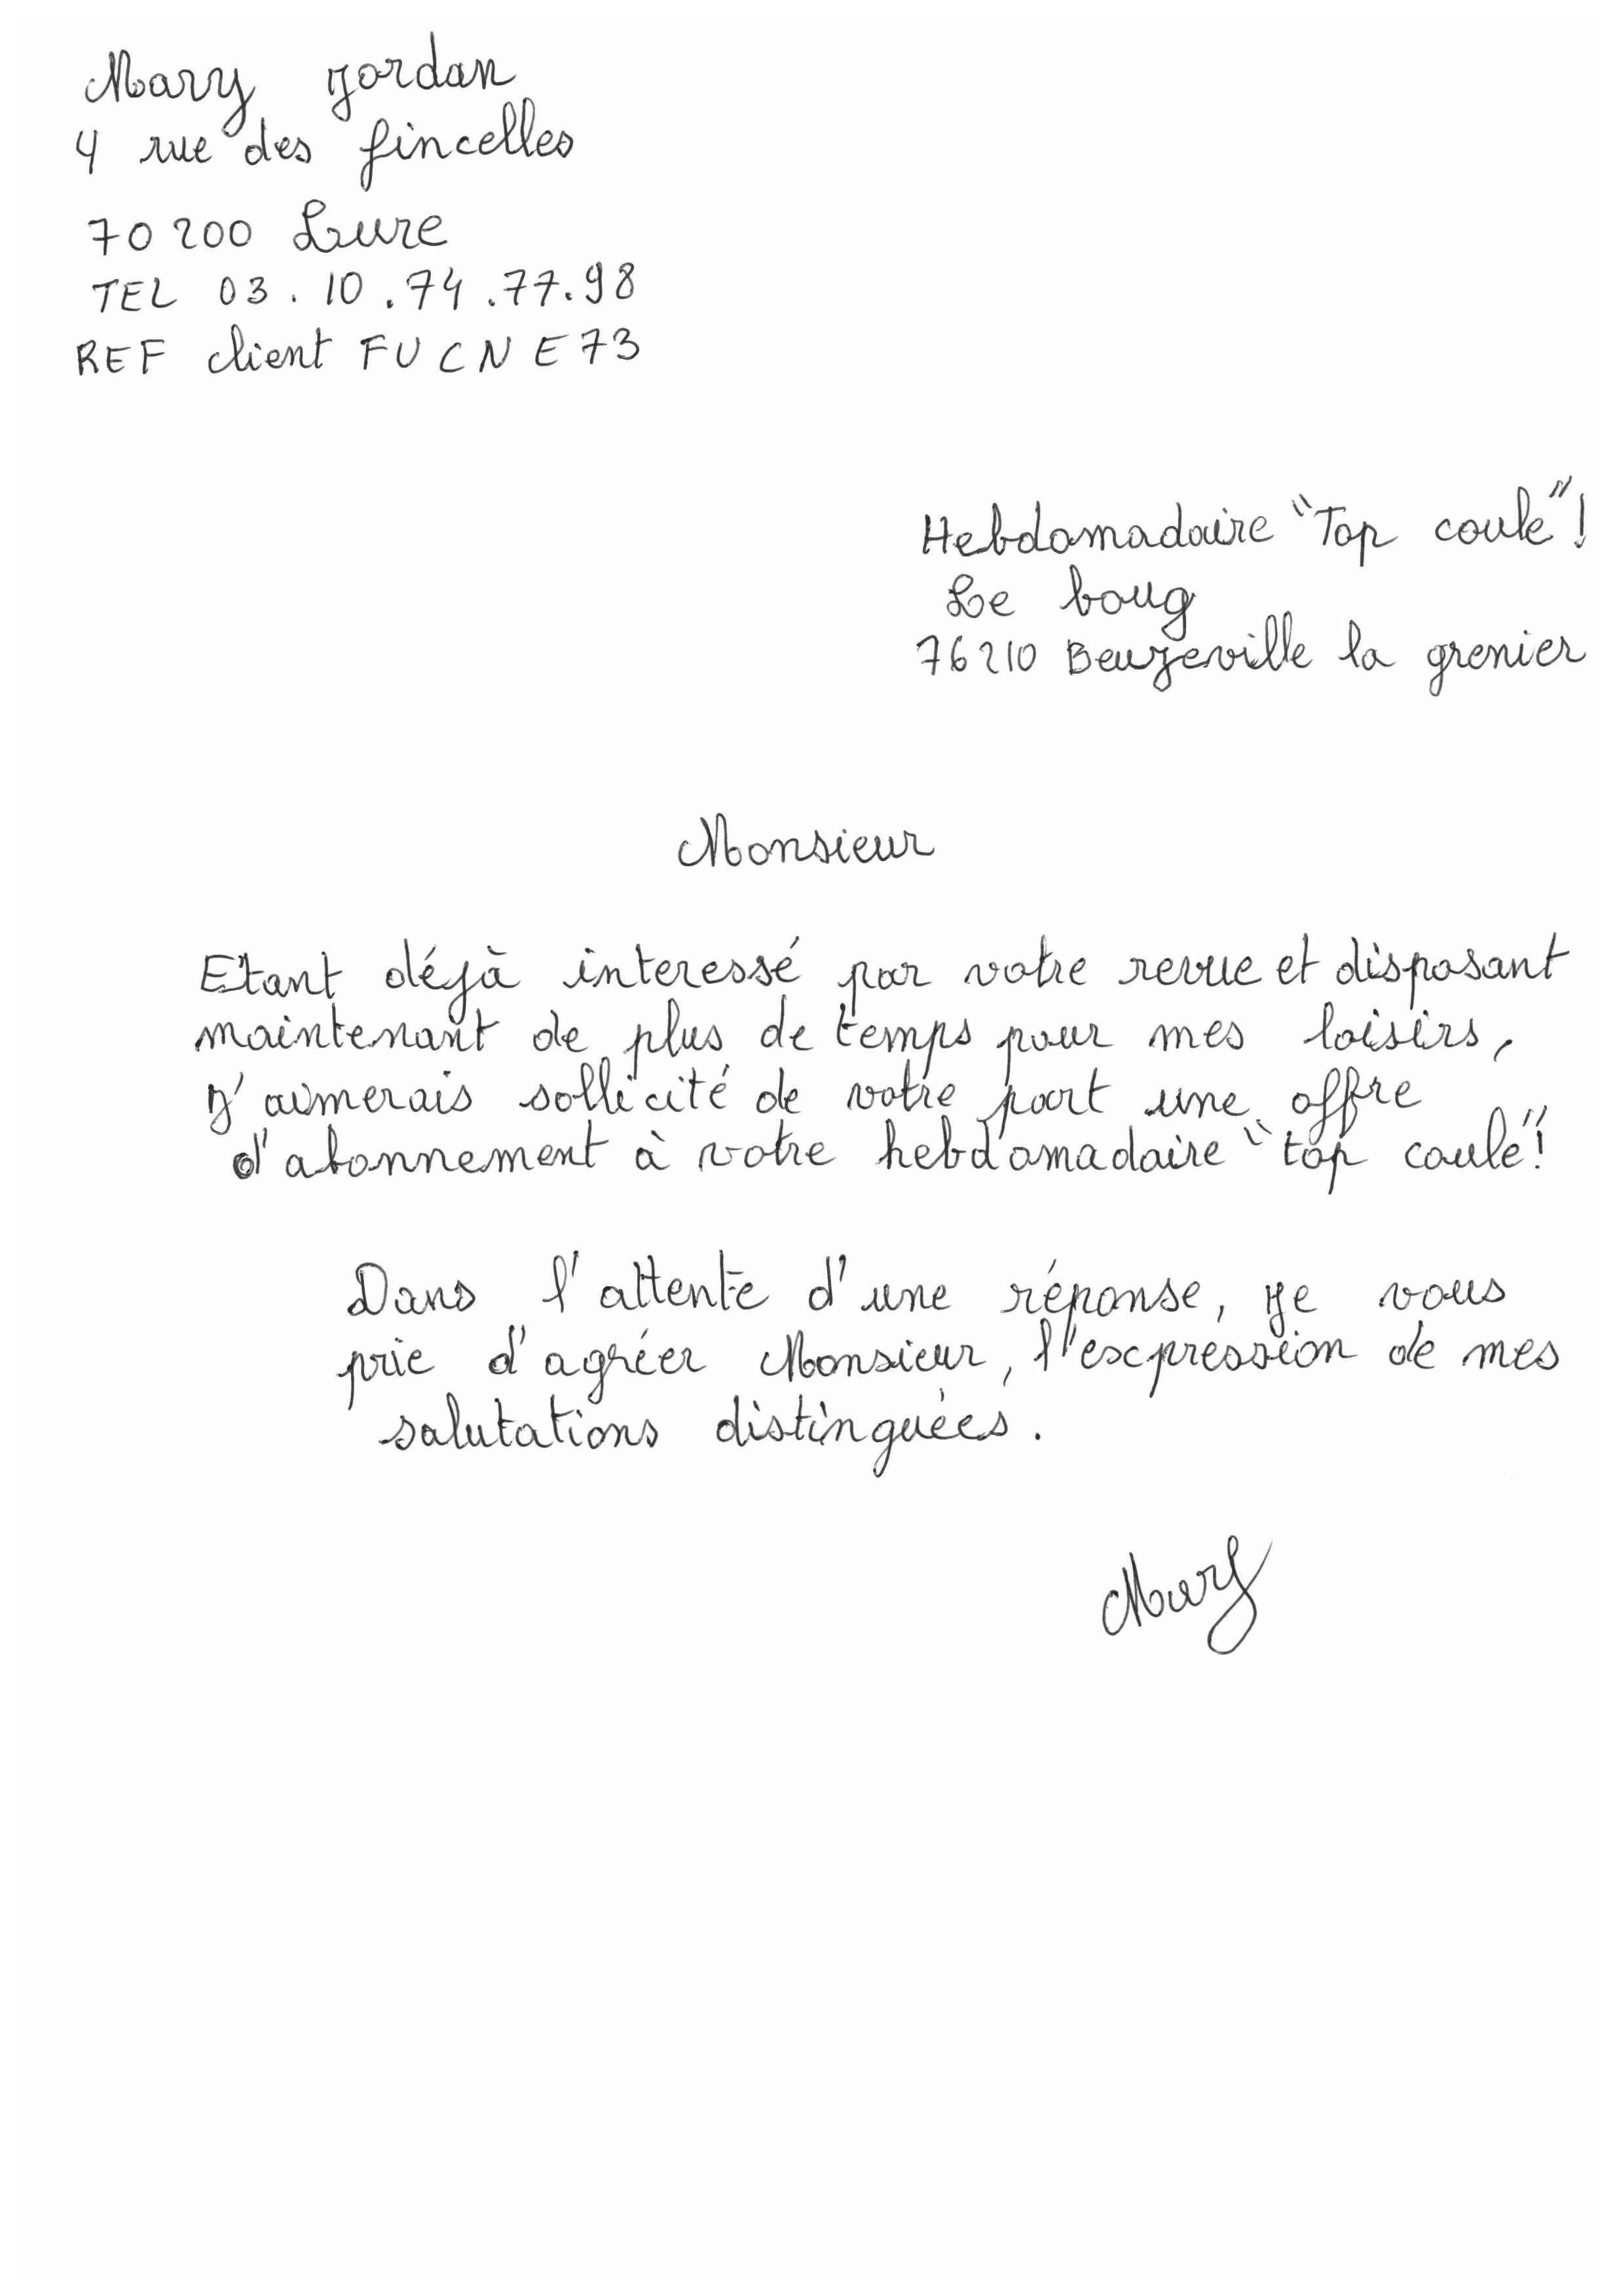 Mary Jordan
4 rue des fincelles
70200 Lure
TEL 03.10.74.77.98
REF client FUCNE73
Hebdomadaire "Top coule"!
Le boug
76210 Beuzeville la grenier
Monsieur
Etant déjà interessé par votre revue et disposant
maintenant de plus de temps pour mes loisirs,
J'aimerais sollicité de votre part une offre
d'abonnement à votre hebdomadaire "top coule"!
Dans l'attente d'une réponse, je vous
prie d'agréer Monsieur, l'expression de mes
salutations distinguées.
Mary